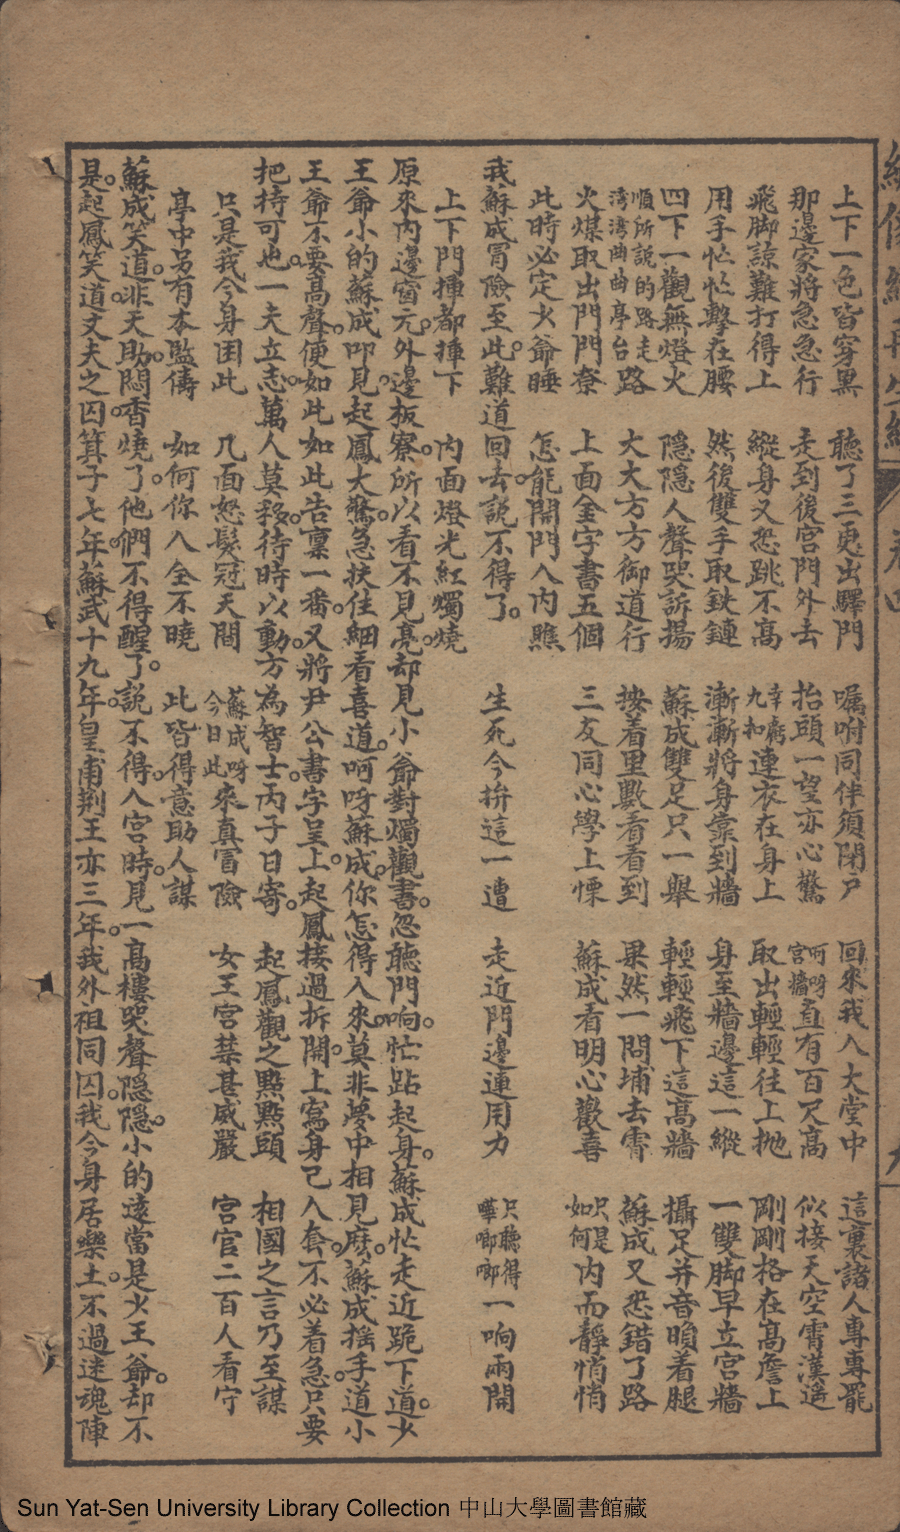 上下一色皆穿黑　聽了三更出驛門　囑咐同伴須閉戶　回來我入大堂中　這裏諸人專專罷
那邊家將急急行　走到後宮門外去　抬頭一望亦心驚　呵呀宮牆直有百尺高　似接天空霄漢遙
飛脚諒難打得上　縱身又恐跳不高　幸虧九扣連衣在身上　取出輕輕往上抛　剛剛格在高詹上
用手忙忙擊在腰　然後雙手取鉄鏈　漸漸將身靠到牆　身至牆邊這一縱　一雙脚早立宮牆
四下一觀無燈火　隠隠人聲哭訴揚　蘇成雙足只一舉　輕輕飛下這高牆　攝足并音暗着腿
順所説的路走灣灣曲曲亭台路　大大方方御道行　按着里數看看到　果然一問埔去霄　蘇成又恐錯了路
火煤取出門門尞　上面金字書五個　三友同心學上慄　蘇成看明心歡喜　只是如何内面靜悄悄
此時必定火爺睡　怎能開門入内瞧
我蘇成冒險至此。難道回去。説不得了。　生死今拚這一遭　走近門邊運用力　只聽得嘩啷啷一响兩開
上下門摙都摙下　内面燈光紅燭燒
原來内邊窗元。外邊板寮。所以看不見亮。却見小爺對燭觀書。忽聽門响。忙跕起身。蘇成忙走近跪下道。少
王爺小的蘇成叩見。起鳳大驚。急扶住細看喜道。呵呀蘇成。你怎得入來。莫非夢中相見麽。蘇成揺手道小
王爺不要高聲。便如此如此告禀一番。又將尹公書字呈上。起鳳接過拆開。上寫身已入套。不必着急。只要
把持可也。一夫立志。萬人莫移。待時以動。方為智士。丙子日寄。　起鳳觀之點點頭　相國之言乃至謀
只是我今身困此　几面怒髮冠天間　蘇成呀今日此來真冒險　女王宮禁甚威嚴　宮官二百人看守
亭中另有本監儔　如何你入全不曉　此皆得意助人謀
蘇成笑道。非天助。悶香燒了。他們不得醒了。説不得。入宮時。見一高樓。哭聲隠隠。小的遠當是火王爺。却不
是。起鳳笑道丈夫之囚。箕子七年。蘇武十九年。皇甫荆王亦三年。我外祖同囚。我今身居樂土。不過迷魂陣